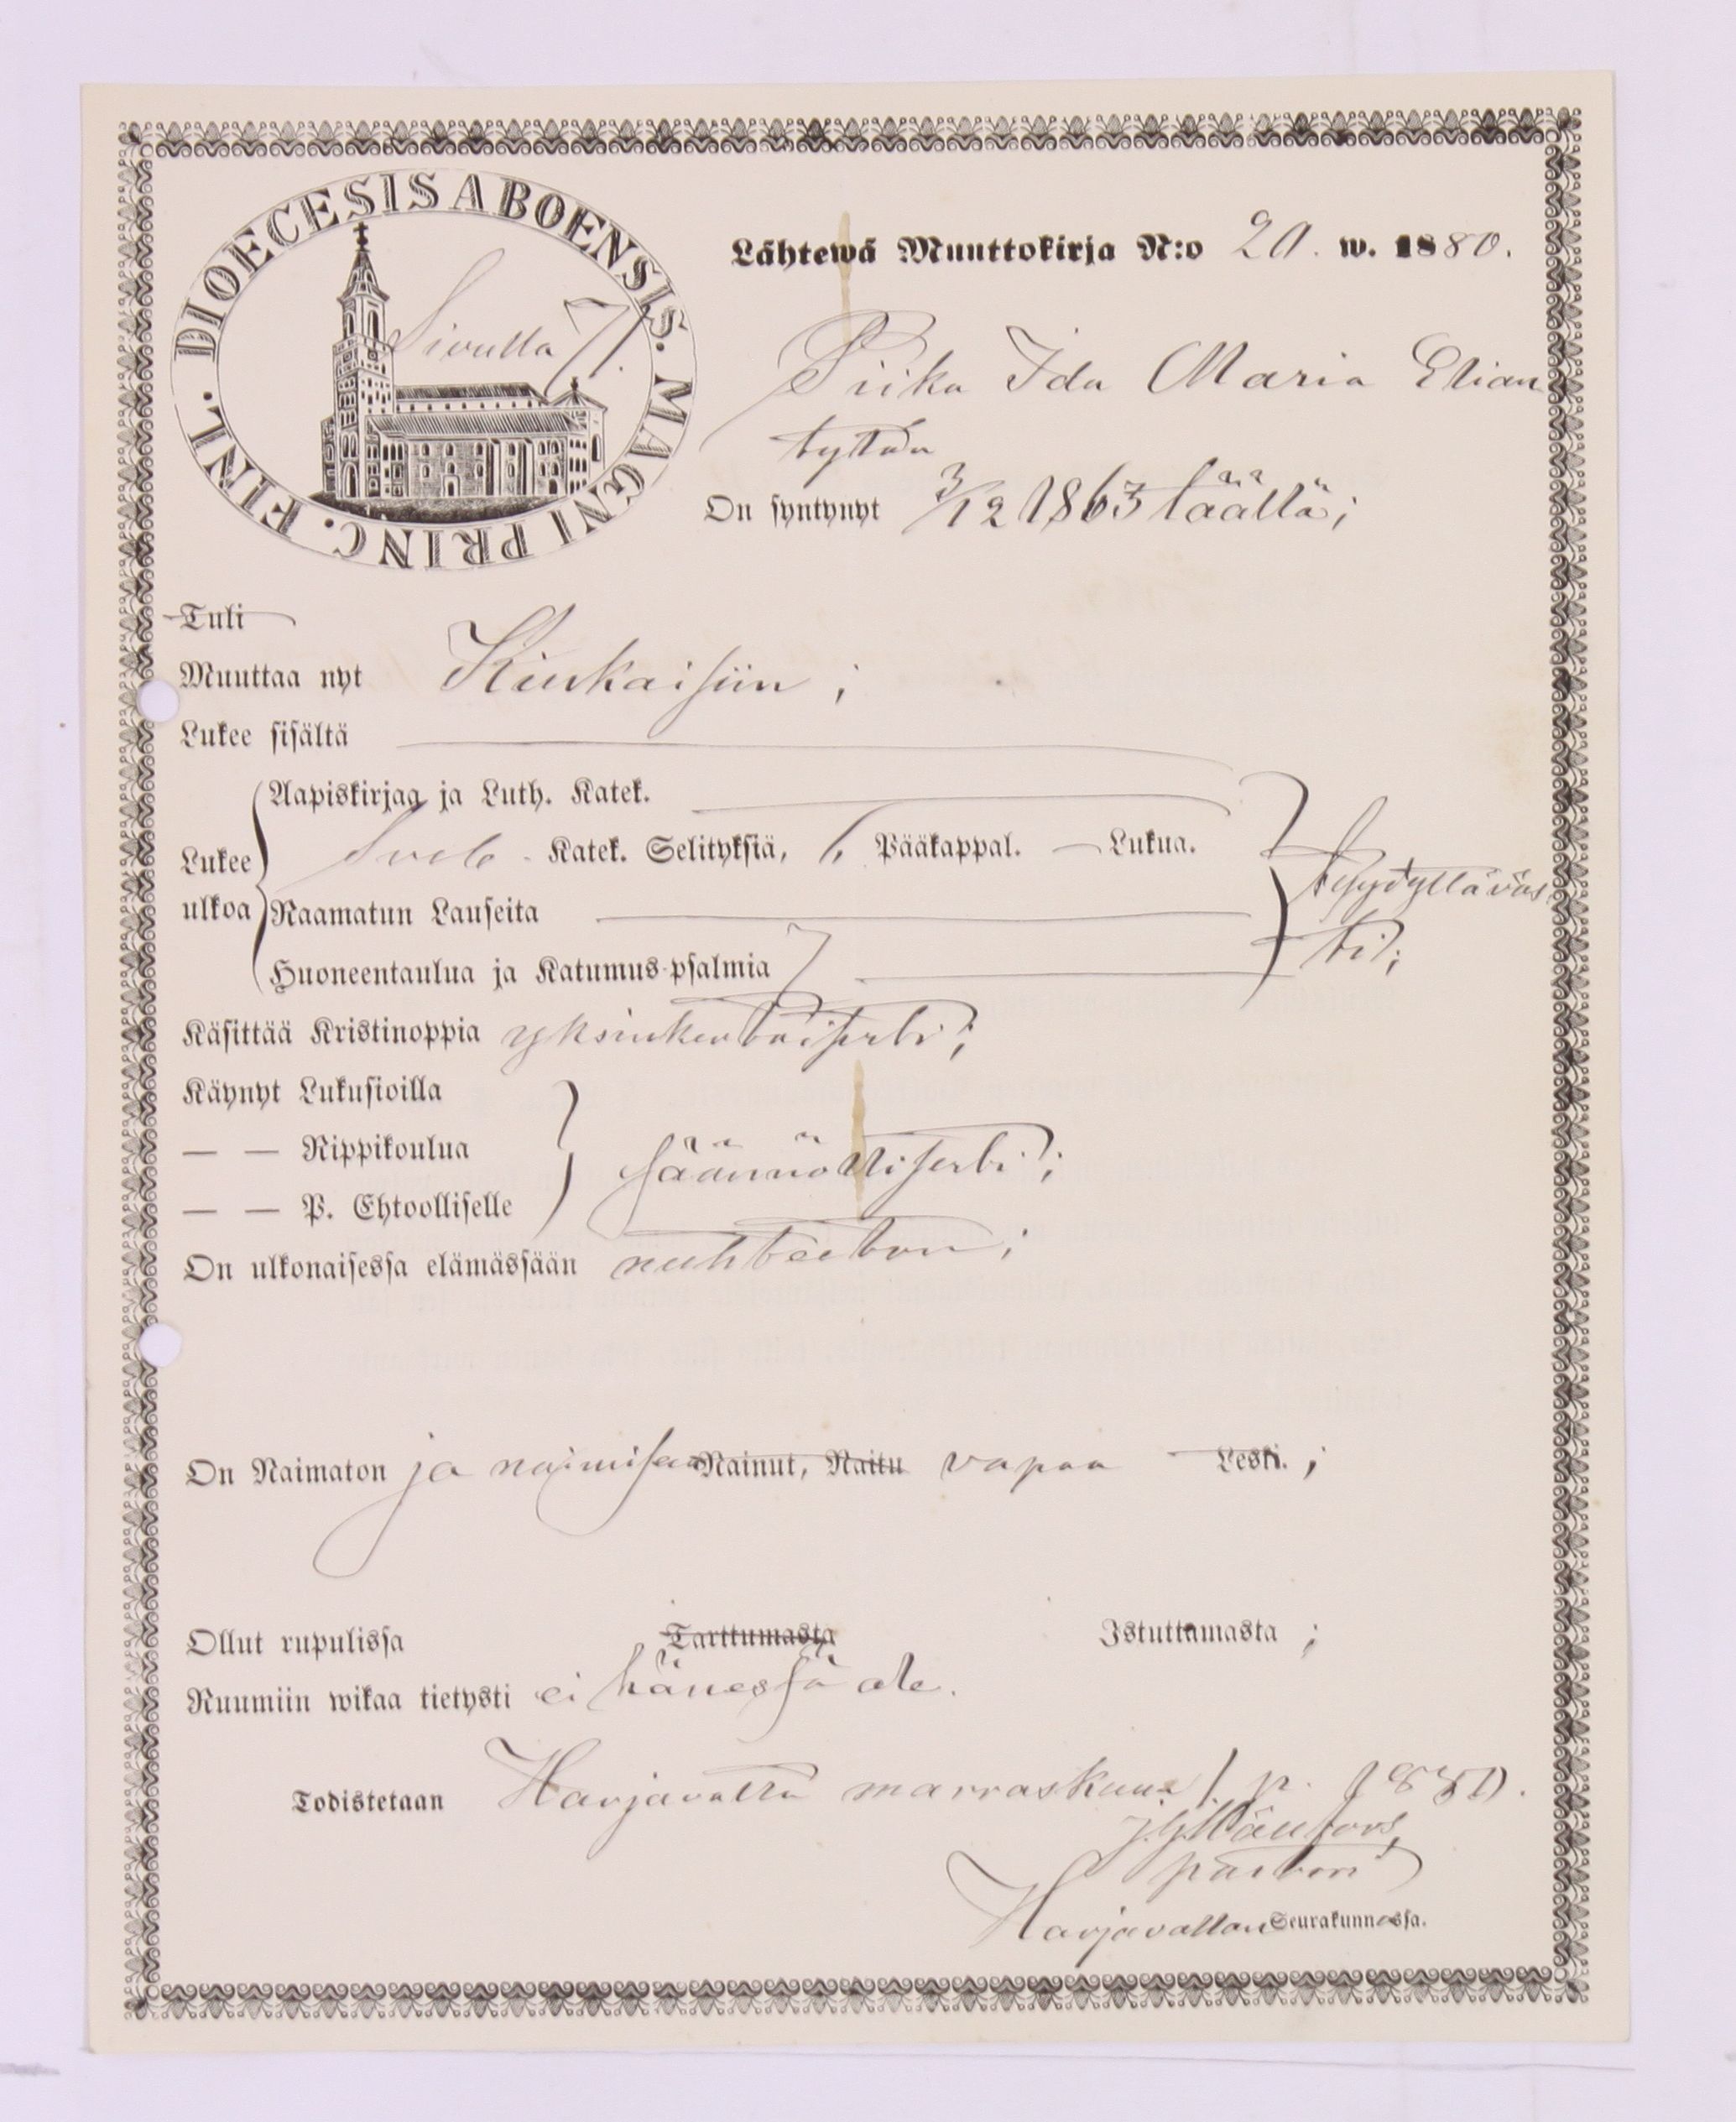 DIOECESIS ABOENSIS. MAGNI PRINC. FINL.
Sivulla 7.
Lähtewä Muuttokirja N:o 20. w. 1880.
Piika Ida Maria Elian
tytär
On syntynyt 3/12 1863 täällä;
Tuli
Muuttaa nyt Kiukaisiin;
Lukee sisältä
Aapiskirjaa ja Luth. Katek.
Lukee Sveb. Katek. Selityksiä, Pääkappal. Lukua. tyydyttäväs
ulkoa Raamatun Lauseita
ti;
Huoneentaulua ja Katumus-psalmia 7
Käsittää Kristinoppia yksinkertaisesti;
Käynyt Lukusioilla
— — Rippikoulua säännöllisesti;
— — P. Ehtoolliselle
On ulkonaisessa elämässään nuhteeton;
On Naimaton ja naimisaan Nainut, Naitu vapaa Leski.;
Ollut rupulissa Tarttumasta Istuttamasta;
Ruumiin wikaa tietysti ei hänessä ole.
Todistetaan Harjavalta marraskuun 1 p. 1880.
pastori
Harjavallan Seurakunnassa.